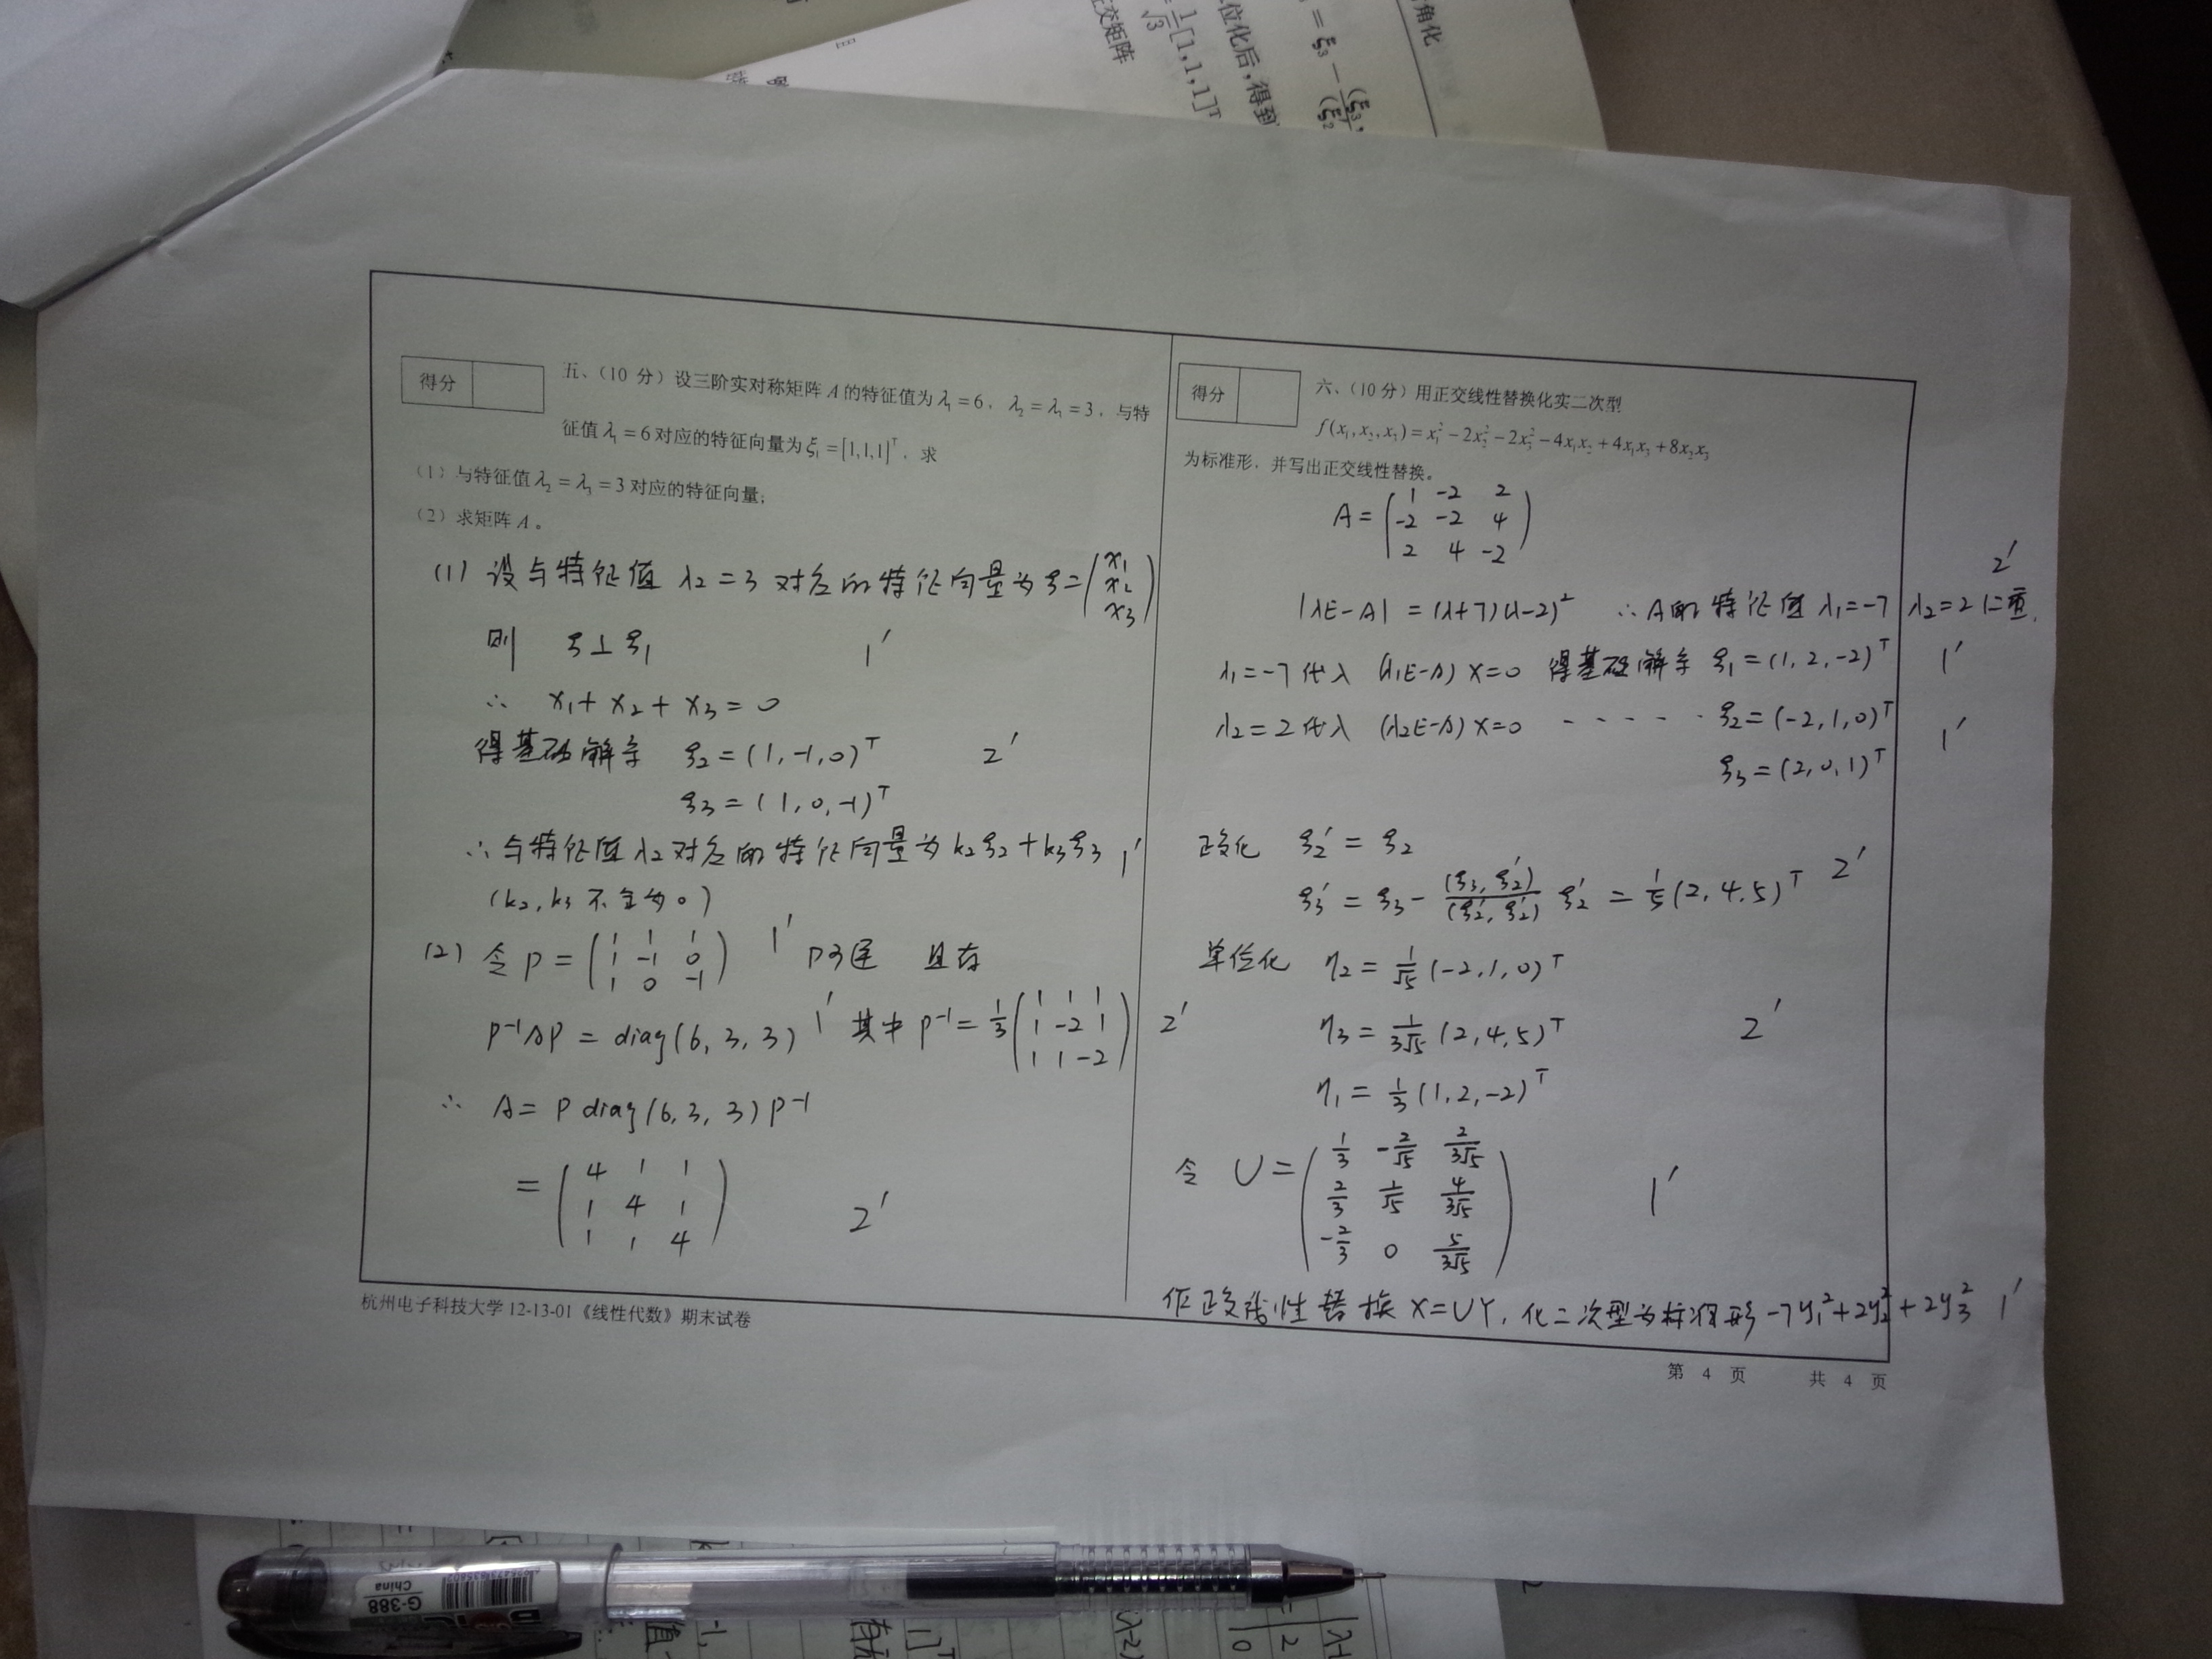 角化
= ξ₃ − (ξ₃,
位化后,得到
1/√3[1,1,1]ᵀ
交矩阵
得分
五、(10 分)设三阶实对称矩阵 A 的特征值为 λ₁ = 6, λ₂ = λ₃ = 3, 与特
征值 λ₁ = 6 对应的特征向量为 ξ₁ = [1,1,1]ᵀ, 求
(1)与特征值 λ₂ = λ₃ = 3 对应的特征向量;
(2)求矩阵 A。
(1) 设与特征值 λ₂=3 对应的特征向量为 ξ=(x₁ x₂ x₃)
则 ξ⊥ξ₁ 1′
∴ x₁+x₂+x₃=0
得基础解系 ξ₂=(1,-1,0)ᵀ 2′
ξ₃=(1,0,-1)ᵀ
∴与特征值λ₂对应的特征向量为k₂ξ₂+k₃ξ₃ 1′
(k₂,k₃不全为0)
(2) 令 P=(1 1 1; 1 -1 0; 1 0 -1) 1′ P可逆 且有
P⁻¹AP = diag(6,3,3) 1′ 其中 P⁻¹=1/3(1 1 1; 1 -2 1; 1 1 -2) 2′
∴ A=P diag(6,3,3)P⁻¹
=(4 1 1; 1 4 1; 1 1 4) 2′
杭州电子科技大学 12-13-01《线性代数》期末试卷
得分
六、(10 分)用正交线性替换化实二次型
f(x₁,x₂,x₃)=x₁²−2x₂²−2x₃²−4x₁x₂+4x₁x₃+8x₂x₃
为标准形,并写出正交线性替换。
A=(1 -2 2; -2 -2 4; 2 4 -2)
|λE-A| = (λ+7)(λ-2)² ∴A的特征值 λ₁=-7 λ₂=2 (二重. 2′
λ₁=-7代入 (λ₁E-A)X=0 得基础解系 ξ₁=(1,2,-2)ᵀ 1′
λ₂=2代入 (λ₂E-A)X=0 ----- ξ₂=(-2,1,0)ᵀ 1′
ξ₃=(2,0,1)ᵀ
正交化 ξ₂′=ξ₂
ξ₃′=ξ₃-(ξ₃,ξ₂′)/(ξ₂′,ξ₂′) ξ₂′=1/5(2,4,5)ᵀ 2′
单位化 η₂=1/√5(-2,1,0)ᵀ
η₃=1/3√5(2,4,5)ᵀ 2′
η₁=1/3(1,2,-2)ᵀ
令 U=(1/3 -2/√5 2/3√5; 2/3 1/√5 4/3√5; -2/3 0 5/3√5) 1′
作正交线性替换X=UY,化二次型为标准形-7y₁²+2y₂²+2y₃² 1′
第 4 页 共 4 页
G-388
China